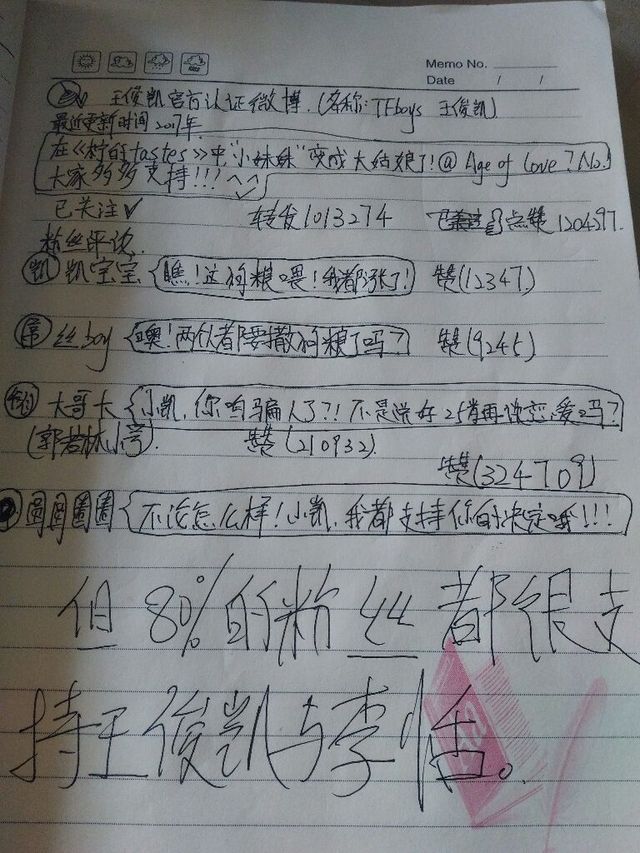 Memo No.
Date / /
王俊凯官方认证微博.(名称:TFboys 王俊凯)
最近更新时间 2017年.
在《柠的tastes》中"小妹妹"变成大姑娘了!@ Age of Love?No!
大家多多支持!!!^^
已关注✓ 转发1013274 点赞1204597.
粉丝评论.
凯 凯宝宝 瞧!这狗粮喂!我都涨了! 赞(12347)
丝boy 噢!两位都要撒狗粮了吗? 赞(9245)
大哥大 小凯,你咋骗人了?!不是说好25岁再谈恋爱吗?
(郭若林小号). 赞(210932).
赞(324709)
圆圆圈圈 不论怎么样!小凯,我都支持你的决定哦!!!
但80%的粉丝都很支
持王俊凯与李恬。